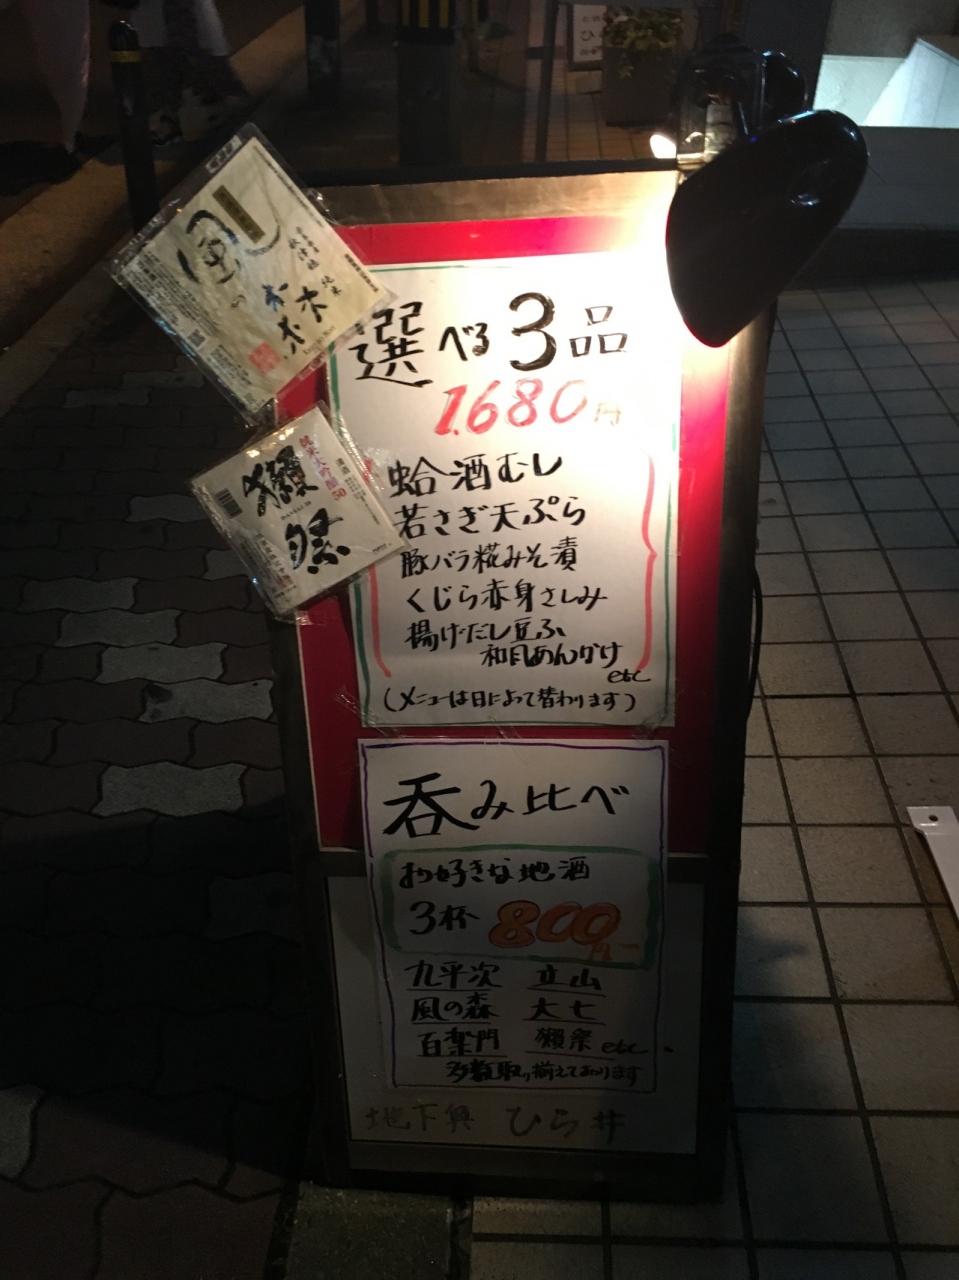 風の森
純米
獺祭
純米大吟醸
50
選べる3品
1,680円
蛤酒むし
若さぎ天ぷら
豚バラ糀みそ漬
くじら赤身さしみ
揚げだし豆ふ
和風あんかけ
etc
(メニューは日によって替わります)
呑み比べ
お好きな地酒
3杯 800円
九平次 立山
風の森 大七
百楽門 獺祭 etc
多数取り揃えております
地下興 ひら井